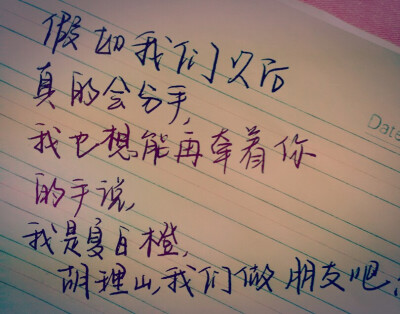 假如我们以后
真的会分手,
我也想能再牵着你
的手说,
我是夏日橙,
胡理山,我们做朋友吧,
Date